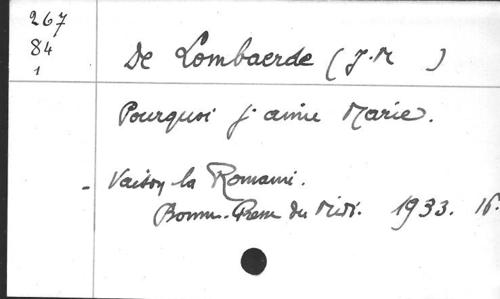 267
84
1
De Lombaerde (J. M )
Pourquoi j'aime Marie.
- Vaison la Romaine.
Bonne Presse du Midi. 1933. 16.